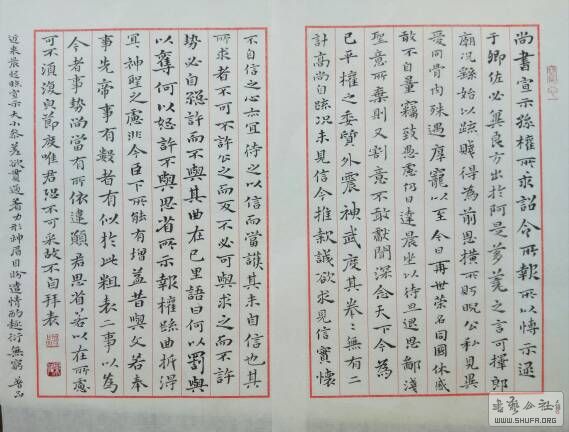 尚書宣示孫權所求詔令所報所以博示逮
于卿佐必冀良方出於阿是芻蕘之言可擇郎
廟況繇始以疏賤得為前恩橫所眄睨公私見異
愛同骨肉殊遇厚寵以至今日再世榮名同國休慼
敢不自量竊致愚慮仍日達晨坐以待旦退思鄙淺
聖意所棄則又割意不敢獻聞深念天下今為
已平權之委質外震神武度其拳々無有二
計高尚自疏況未見信今推款誠欲求見信實懷
不自信之心亦宜待之以信而當護其未自信也其
所求者不可不許許之而反不必可與求之而不許
勢必自絕許而不與其曲在己里語曰何以罰與
以奪何以怒許不與思省所示報權疏曲折得
宜神聖之慮非今臣下所能有增益昔與文若奉
事先帝事有數者有似於此粗表二事以為
今者事勢尚當有所依違願君思省若以在所慮
可不須復與節度唯君恐不可采故不自拜表
近來晨起臨宣示大小參差欲貫通著力形神眉目盼遣情酌趣衍無窮
WWW.SHUFA.ORG